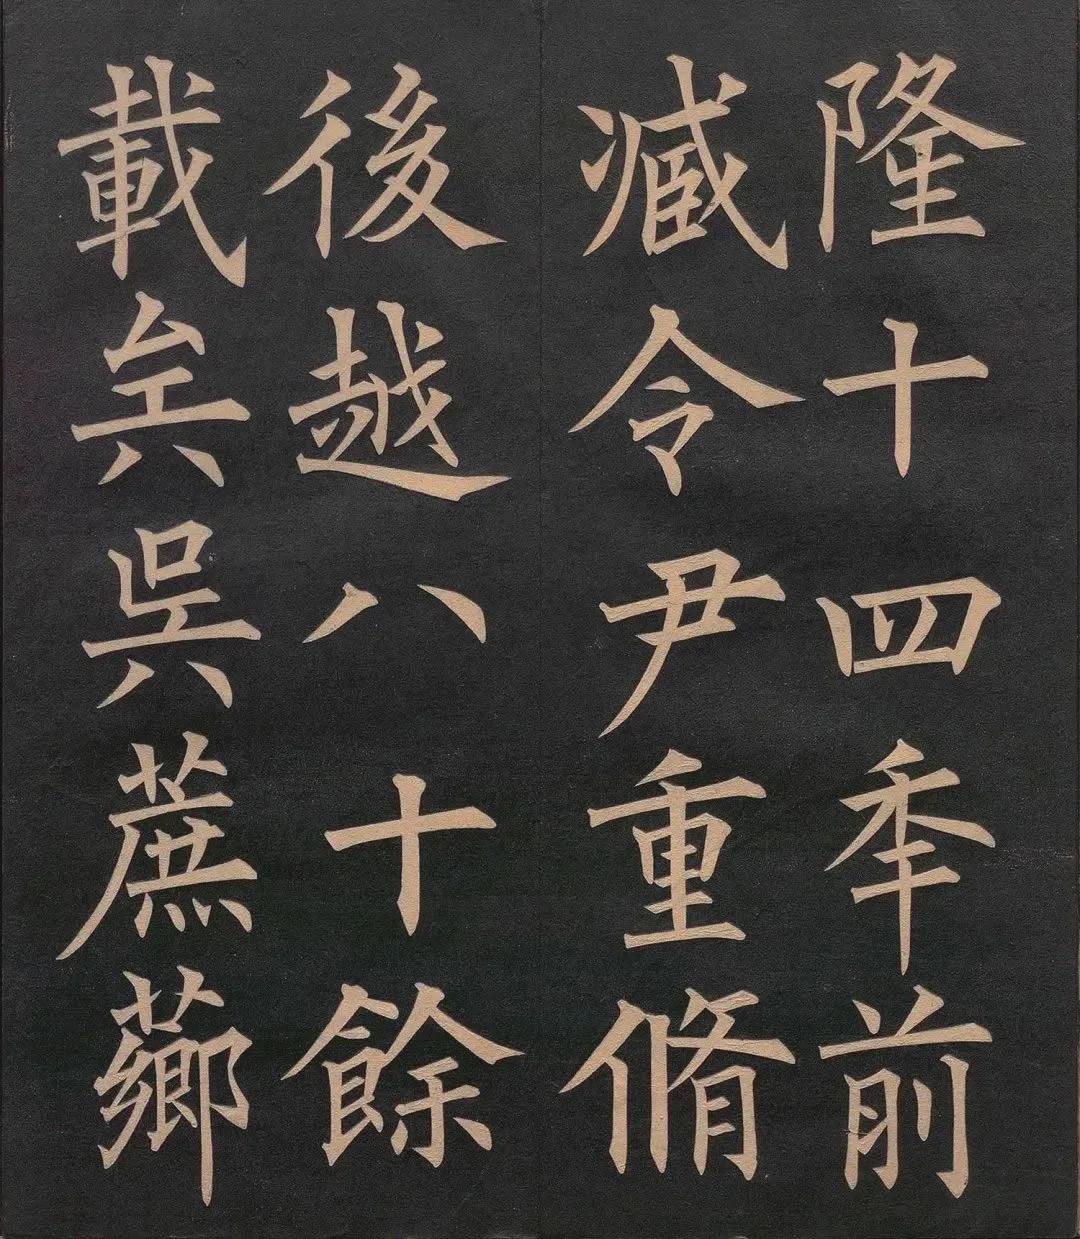 隆十四秊前
臧令尹重脩
後越八十餘
載矣吳蔗薌